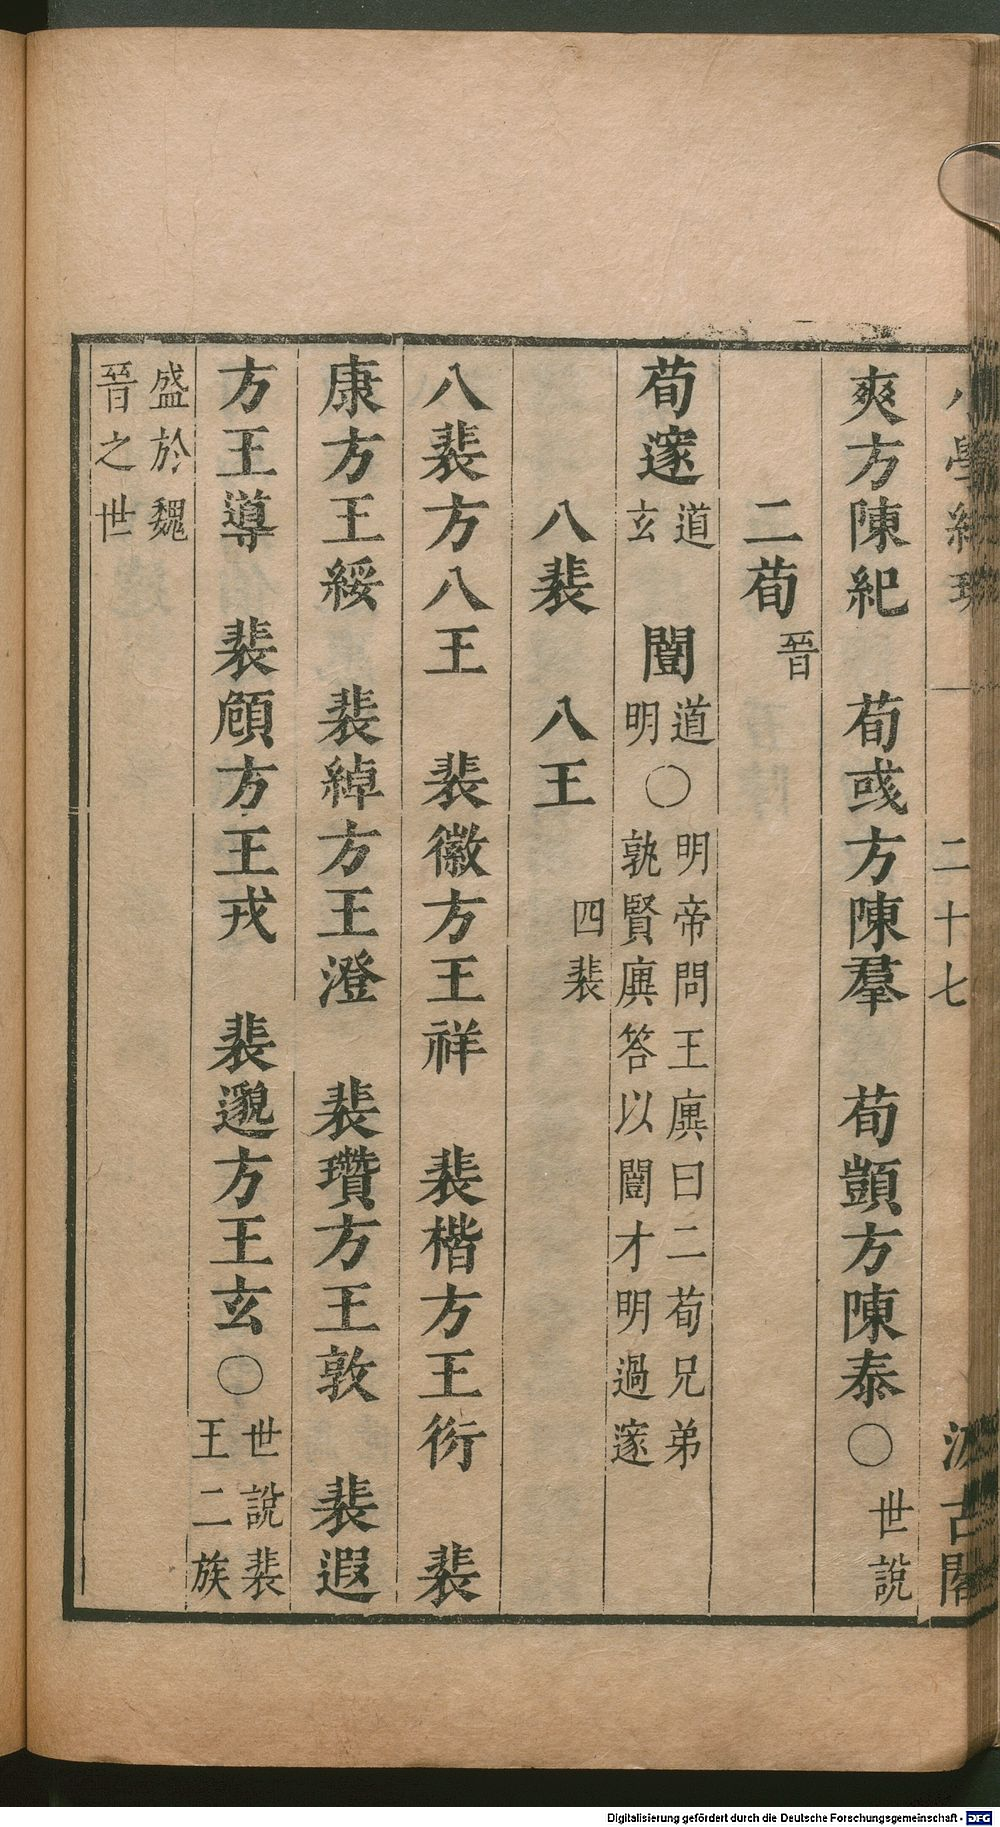 小學紺珠 二十七 汲古閣
爽方陳紀 荀彧方陳羣 荀顗方陳泰〇世說
二荀晉
荀邃道玄 闓道明〇明帝問王廙曰二荀兄弟孰賢廙答以闓才明過邃
八裴 八王 四裴
八裴方八王 裴徽方王祥 裴楷方王衍 裴
康方王綏 裴綽方王澄 裴瓚方王敦 裴遐
方王導 裴頠方王戎 裴邈方王玄〇世說裴王二族
盛於魏晉之世
Digitalisierung gefördert durch die Deutsche Forschungsgemeinschaft - DFG